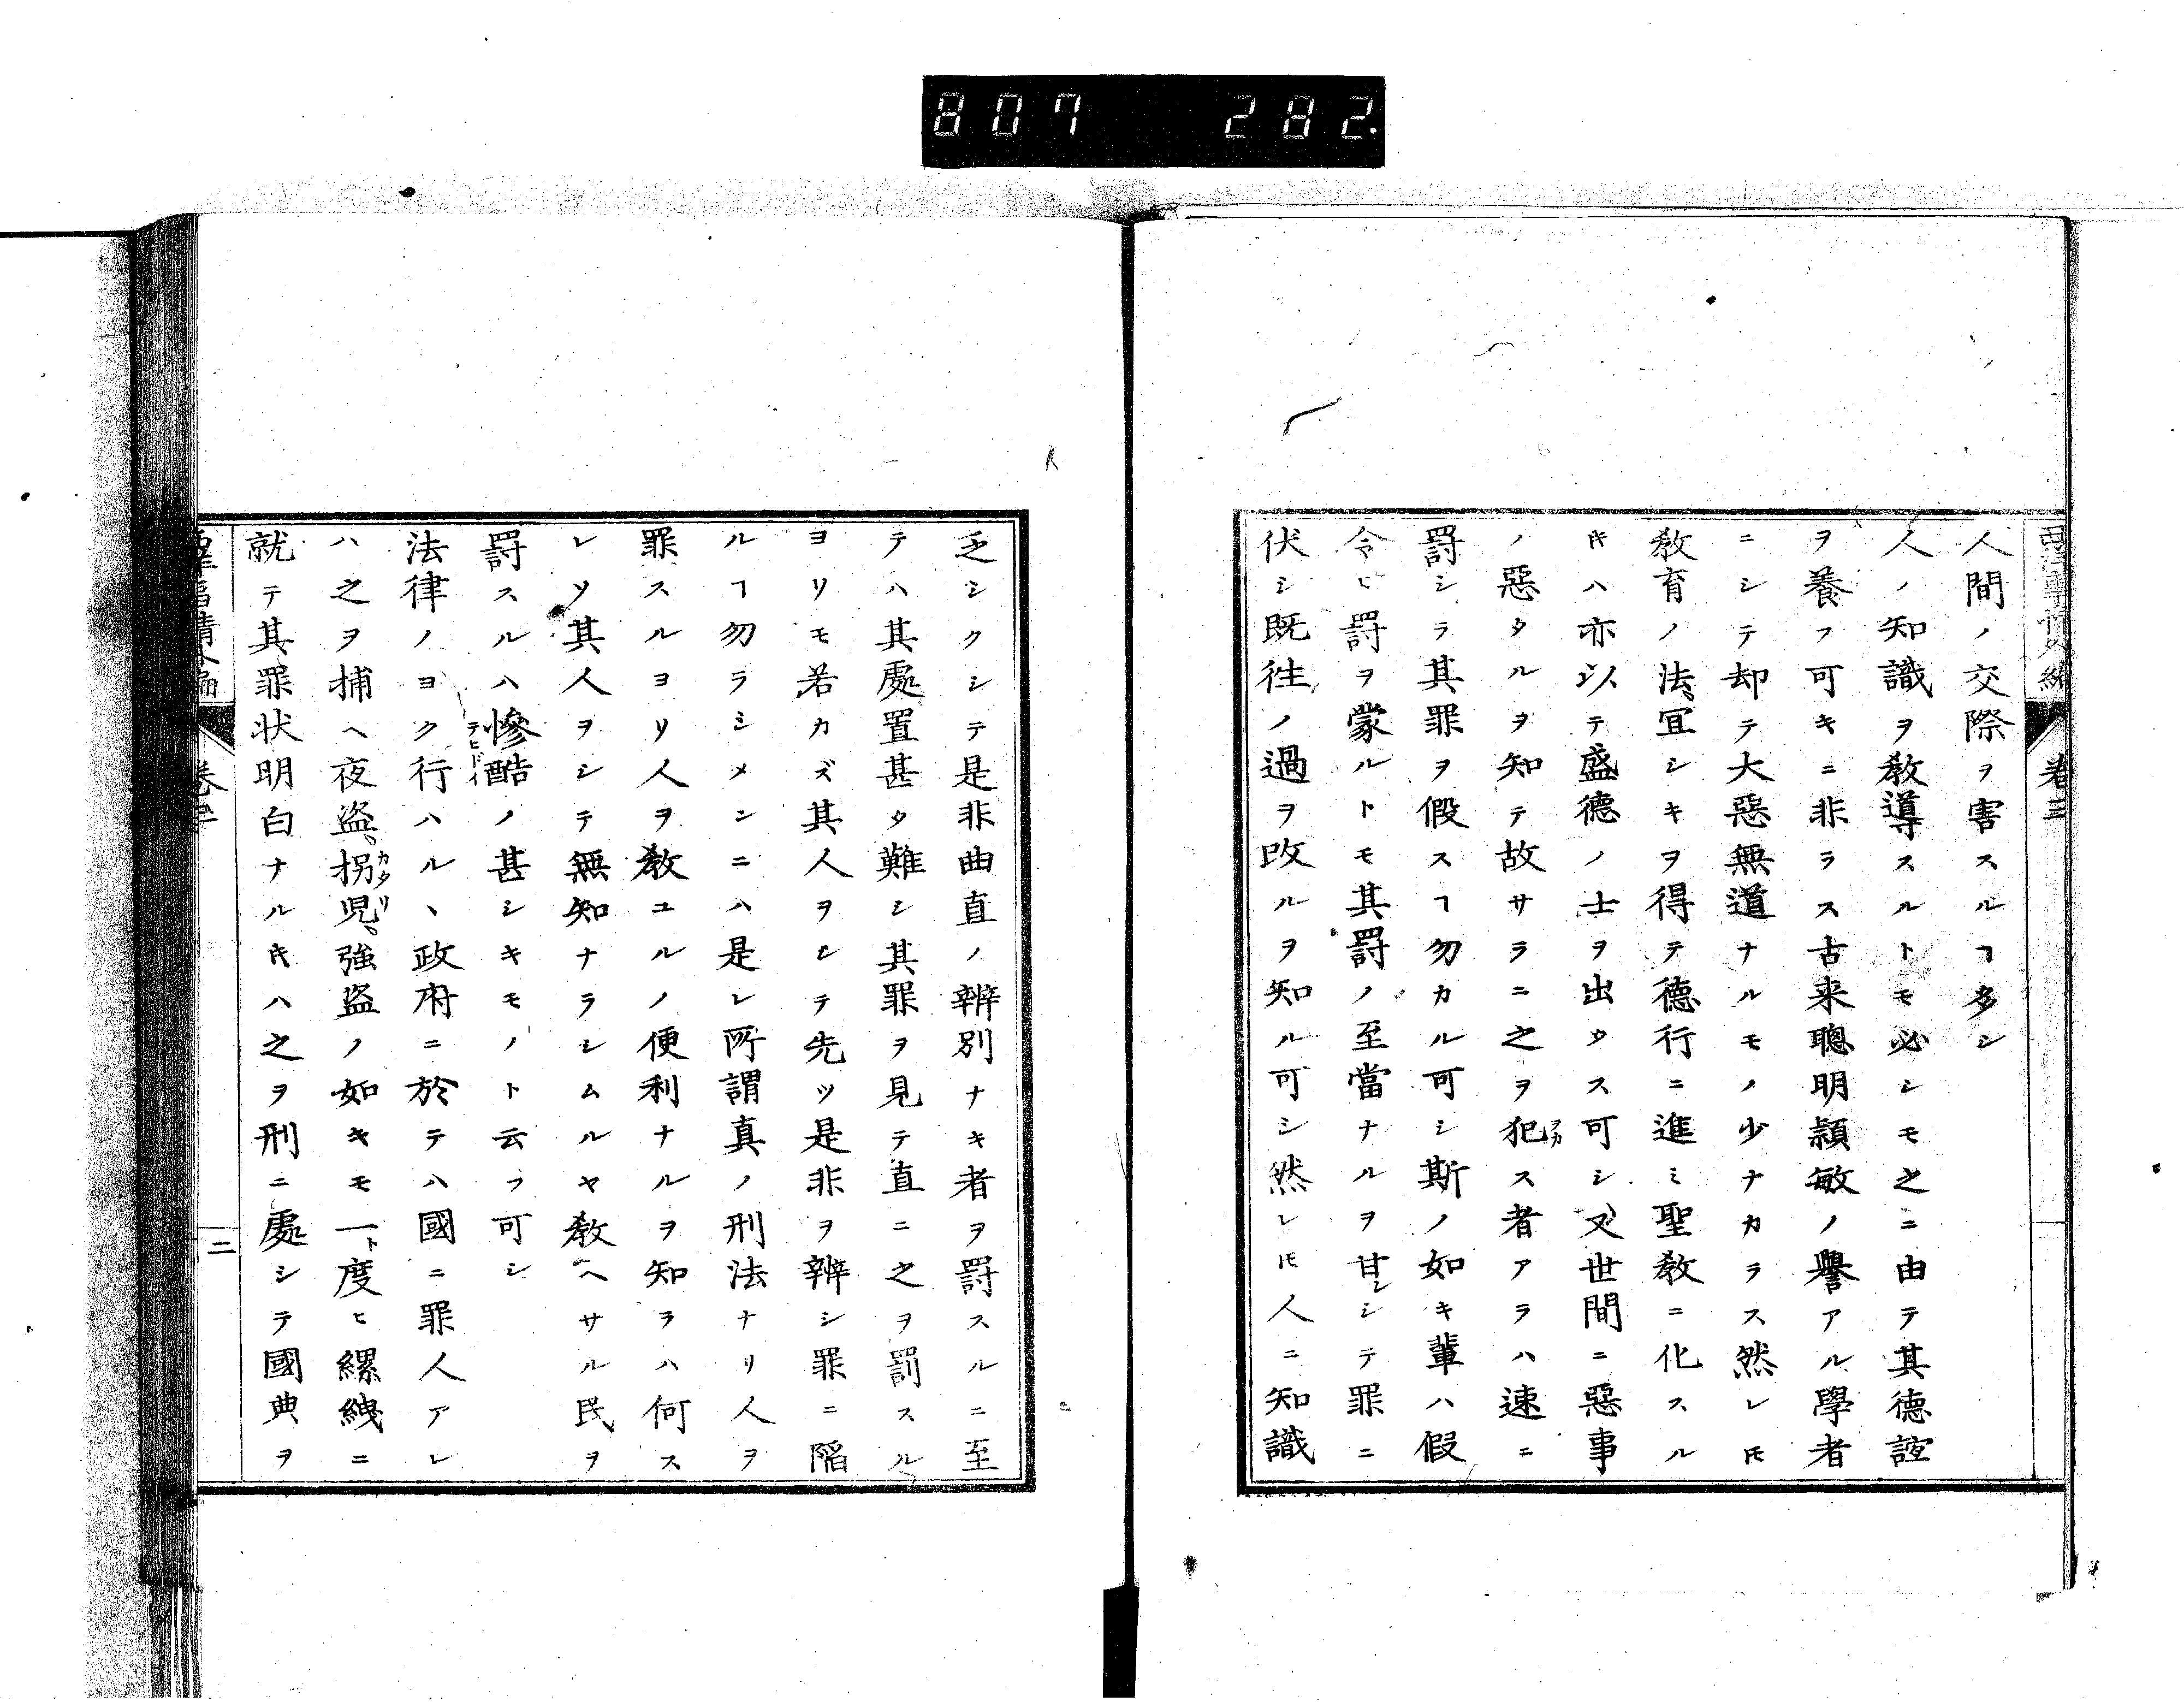 807 282.
人間ノ交際ヲ害スルヿ多シ
人ノ知識ヲ教導スルトモ必シモ之ニ由テ其德誼
ヲ養フ可キニ非ラス古来聰明頴敏ノ譽アル學者
ニシテ却テ大惡無道ナルモノ少ナカラス然レ𪜈
教育ノ法、冝シキヲ得テ德行ニ進ミ聖教ニ化スル
𪜀ハ亦以テ盛德ノ士ヲ出タス可シ又世間ニ惡事
ノ惡タルヲ知テ故サラニ之ヲ犯ス者アラハ速ニ
罸シラ其罪ヲ假スヿ勿カル可シ斯ノ如キ輩ハ假
令ヒ罸ヲ蒙ルトモ其罸ノ至當ナルヲ甘シシテ罪ニ
伏シ既往ノ過ヲ改ルヲ知ル可シ然レ𪜈人ニ知識
卷三
乏シクシテ是非曲直ノ辨別ナキ者ヲ罸スルニ至
テハ其處置甚タ難シ其罪ヲ見テ直ニ之ヲ罰スル
ヨリモ若カズ其人ヲシテ先ツ是非ヲ辨シ罪ニ陷
ルヿ勿ラシメンニハ是レ所謂真ノ刑法ナリ人ヲ
罪スルヨリ人ヲ教ユルノ便利ナルヲ知ラハ何ス
レソ其人ヲシテ無知ナラシムルヤ教ヘサル民ヲ
罸スルハ慘酷ノ甚シキモノト云フ可シ
テヒドイ
法律ノヨク行ハルヽ政府ニ於テハ國ニ罪人アレ
ハ之ヲ捕ヘ夜盜、拐児、強盜ノ如キモ一ト度ヒ縲絏ニ
カタリ
就テ其罪状明白ナル𪜀ハ之ヲ刑ニ處シテ國典ヲ
卷三
二